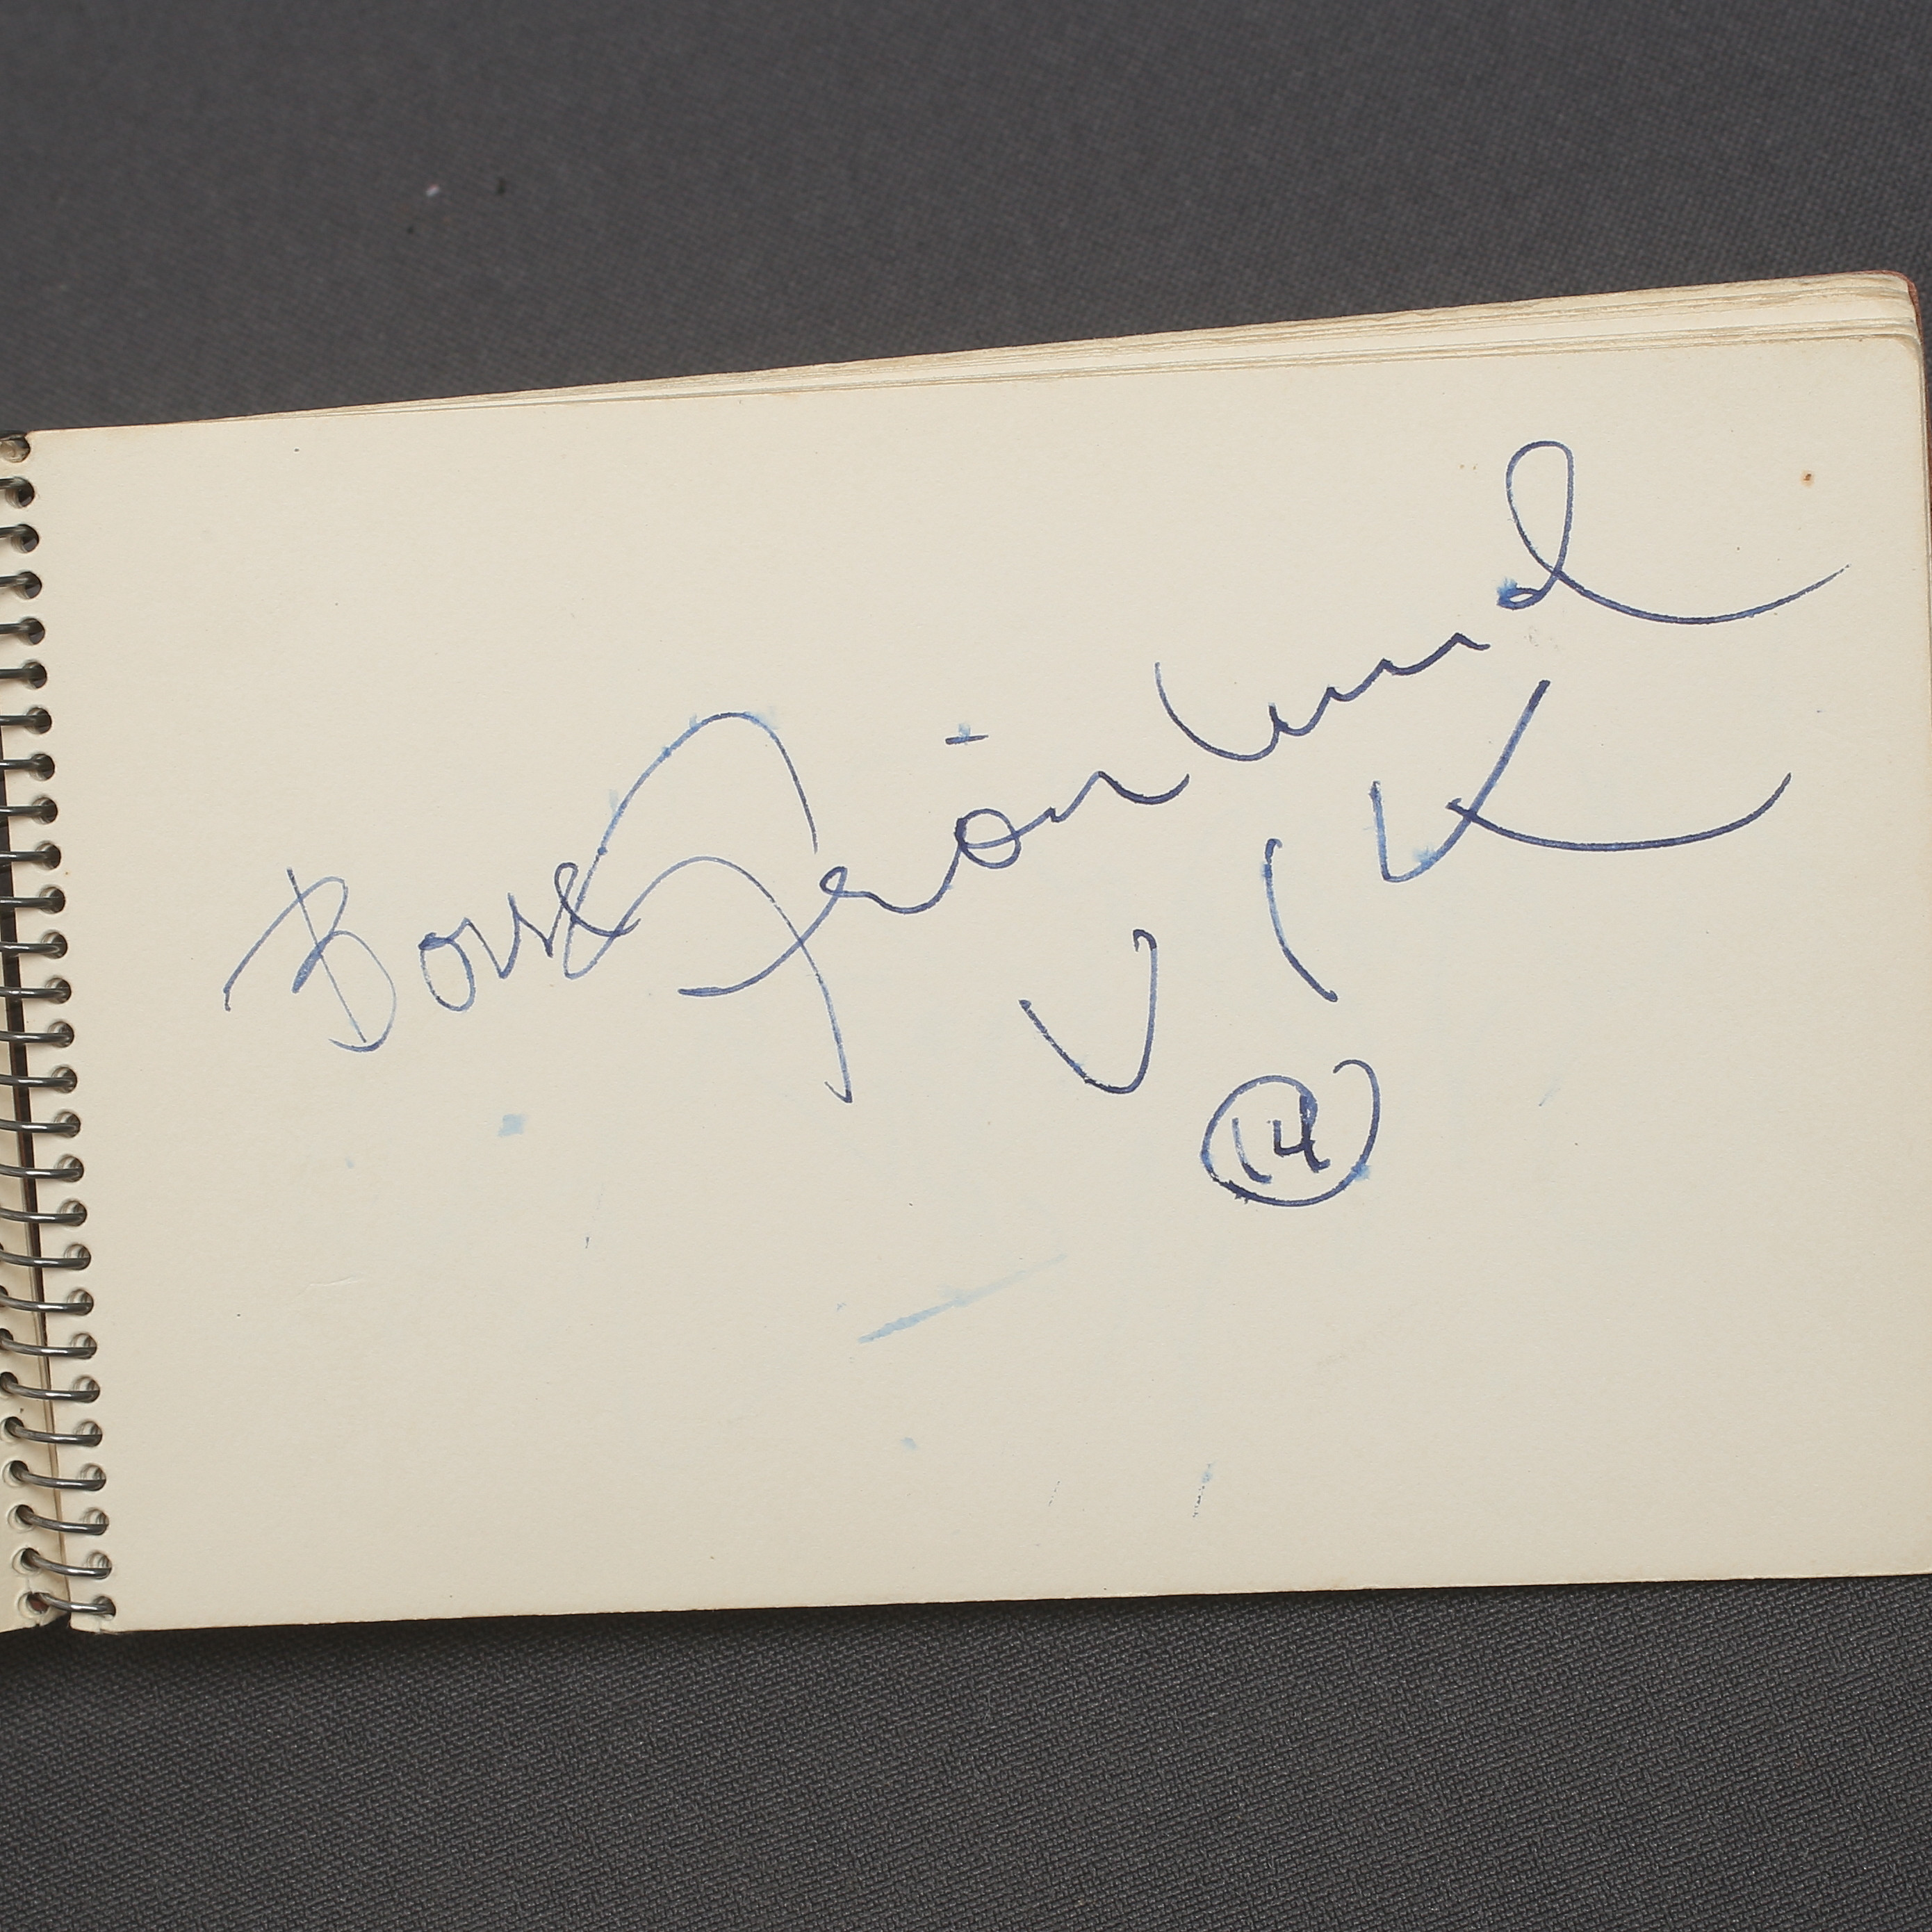 Börje Grönlund
VIK
14